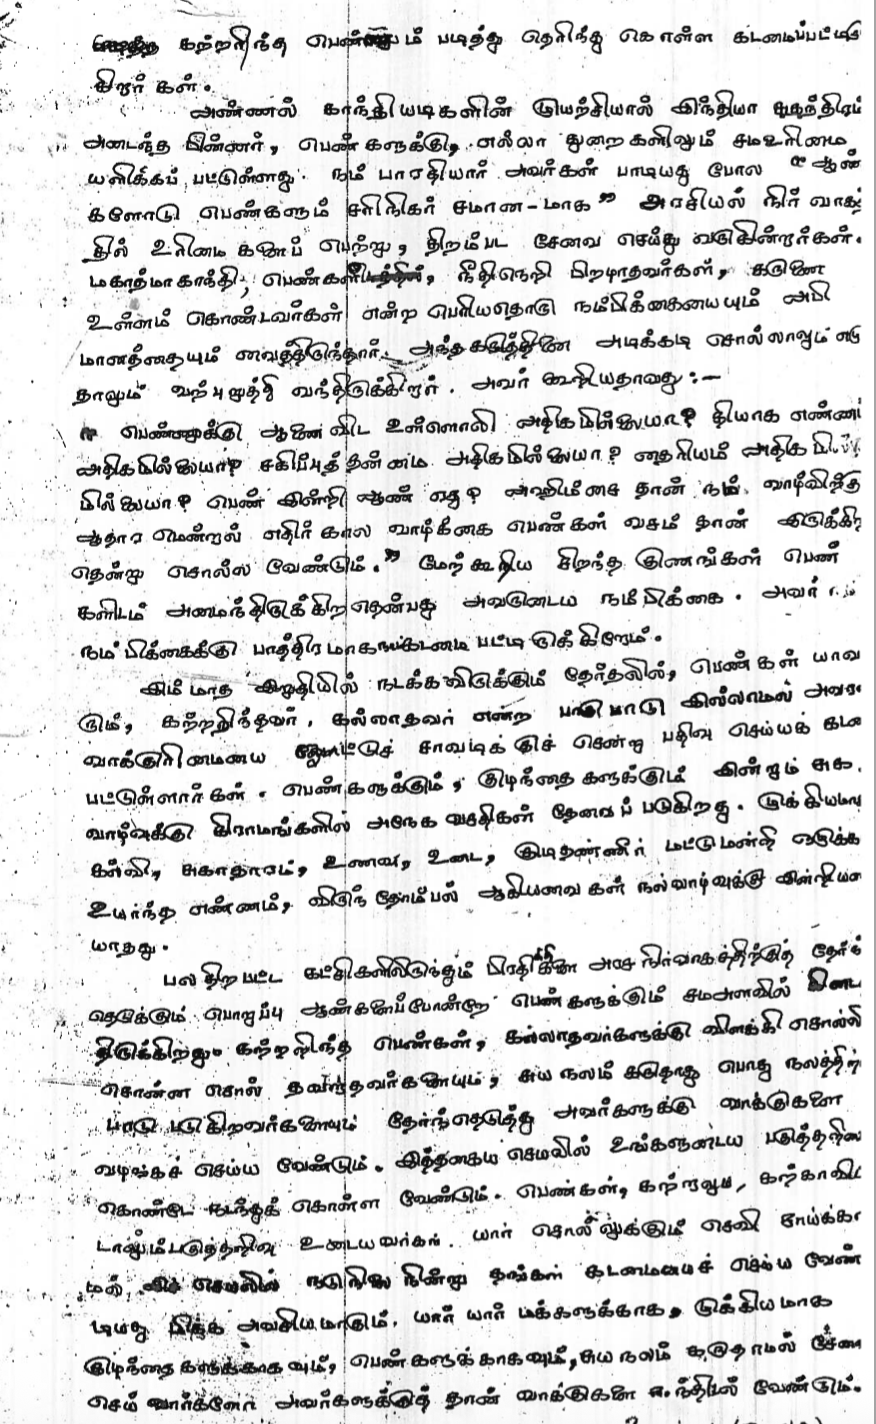 கற்றறிந்த பெண்ணும் படித்து தெரிந்து கொள்ள கடமைப்பட்டிரு
கிறார்கள்.
அண்ணல் காந்தியடிகளின் முயற்சியால் இந்தியா சுதந்திரம்
அடைந்த பின்னர், பெண்களுக்கு, எல்லா துறைகளிலும் சமஉரிமை
யளிக்கப் பட்டுள்ளது. நம் பாரதியார் அவர்கள் பாடியது போல "ஆண்
களோடு பெண்களும் சரிநிகர் சமான-மாக" அரசியல் நிர்வாகத்
தில் உரிமைகளைப் பெற்று, திறம்பட சேவை செய்து வருகின்றார்கள்.
மகாத்மாகாந்தி, பெண்கள், நீதிநெறி பிறழாதவர்கள், கருணை
உள்ளம் கொண்டவர்கள் என்ற பெரியதொரு நம்பிக்கையையும் அபி
மானத்தையும் வைத்திருந்தார். அந்தகருத்தினை அடிக்கடி சொல்லாலும் எழு
தாலும் வற்புறுத்தி வந்திருக்கிறார். அவர் கூறியதாவது:-
" பெண்ணுக்கு ஆணைவிட உள்ளொலி அதிகமில்லையா? தியாக எண்ண
அதிகமில்லையா? சகிப்புத்தன்மை அதிகமில்லையா? தைரியம் அதிக
மில்லையா? பெண் இன்றி ஆண் ஏது? அஹிம்சை தான் நம் வாழ்விற்கு
ஆதார மென்றால் எதிர்கால வாழ்க்கை பெண்கள் வசம் தான் இருக்கிற
தென்று சொல்ல வேண்டும்." மேற்கூறிய சிறந்த குணங்கள் பெண்
களிடம் அமைந்திருக்கிறதென்பது அவருடைய நம்பிக்கை. அவர்
நம்பிக்கைக்கு பாத்திரமாகநாம்கடமை பட்டிருக்கிறோம்.
இம்மாத இறுதியில் நடக்கவிருக்கும் தேர்தலில், பெண்கள் யாவ
ரும், கற்றறிந்தவர், கல்லாதவர் என்ற பாகுபாடு இல்லாமல் அவர
வாக்குரிமையை ஓட்டுச் சாவடிக்குச் சென்று பதிவு செய்யக் கட
பட்டுள்ளார்கள். பெண்களுக்கும், குழந்தைகளுக்கும் இன்றும் சுக
வாழ்வுக்கு கிராமங்களில் அநேக வசதிகள் தேவைப் படுகிறது. முக்கியமா
கல்வி, சுகாதாரம், உணவு, உடை, குடிதண்ணீர் மட்டுமன்றி ஒழுக்க
உயர்ந்த எண்ணம், விருந்தோம்பல் ஆகியவைகள் நல்வாழ்வுக்கு இன்றியமை
யாதது.
பலதிறபட்ட கட்சிகளிலிருந்தும் பிரதிநிதிகளை அரசநிர்வாகத்திற்குத் தேர்ந்
தெடுக்கும் பொறுப்பு ஆண்களைப்போன்றே பெண்களுக்கும் சமஅளவில்
திருக்கிறது. கற்றறிந்த பெண்கள், கல்லாதவர்களுக்கு விளக்கி சொல்லி
சொன்ன சொல் தவறாதவர்களையும், சுயநலம் கருதாது பொது நலத்திற்
பாடு படுகிறவர்களையும் தேர்ந்தெடுத்து அவர்களுக்கு வாக்குகளை
வழங்கச் செய்ய வேண்டும். இத்தகைய செயலில் உங்களுடைய பகுத்தறிவை
கொண்டே நடந்துக் கொள்ள வேண்டும். பெண்கள், கற்றாலும், கற்காவிட்
டாலும்பகுத்தறிவு உடையவர்கள். யார் சொல்லுக்கும் செவி சாய்க்கா
மல், நடுநிலை நின்று தங்கள் கடமையைச் செய்ய வேண்
டியது மிக்க அவசியமாகும். யார் யார் மக்களுக்காக, முக்கியமாக
குழந்தைகளுக்காகவும், பெண்களுக்காகவும், சுயநலம் கருதாமல் சேவை
செய்வார்களோ அவர்களுக்குத் தான் வாக்குகளை வேண்டும்.